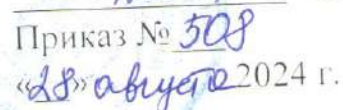 Приказ № 508
«28» августа 2024 г.